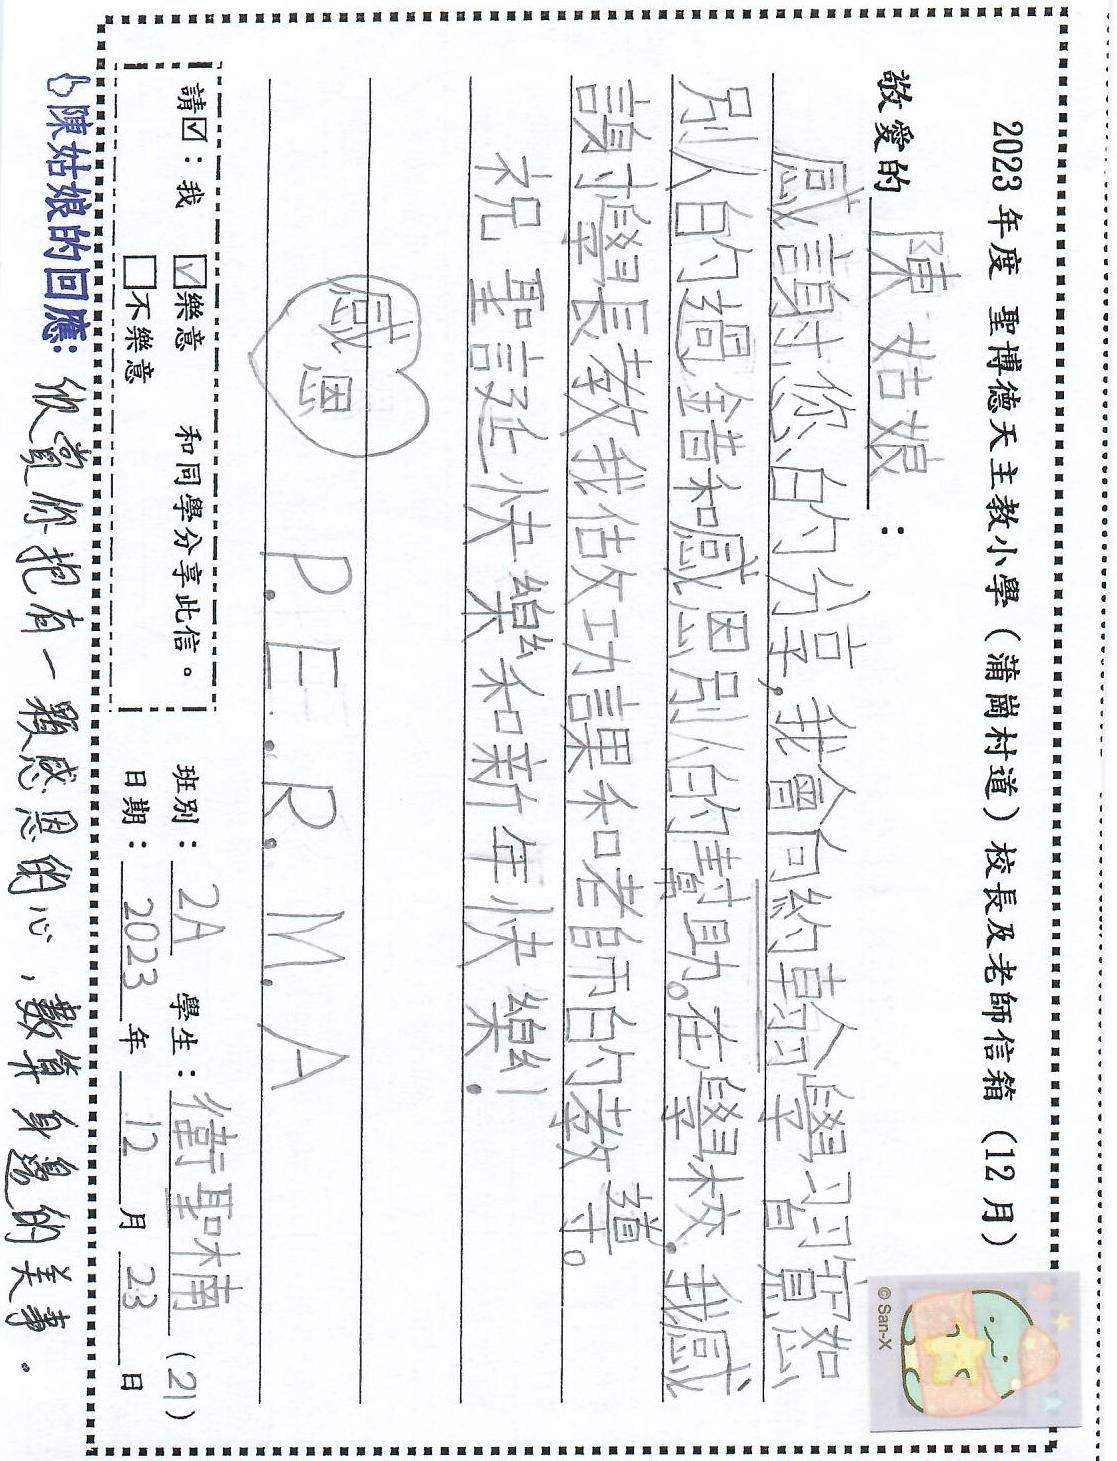 2023 年度 聖博德天主教小學（蒲崗村道）校長及老師信箱（12 月）
敬愛的 陳姑娘：
感謝您的分享，我會向約翰學習寬恕
別人的過錯和感恩別人的幫助。在學校，我感
謝學長教我估女功課和老師的教導。
祝 聖誕快樂和新年快樂！
感恩
P.E.R.M.A
請☑：我 ☑樂意 和同學分享此信。
□不樂意
班別：2A 學生：衛聖楠 (21)
日期：2023 年 12 月 23 日
陳姑娘的回應：欣賞你抱有一顆感恩的心，數算身邊的美事。
© San-X